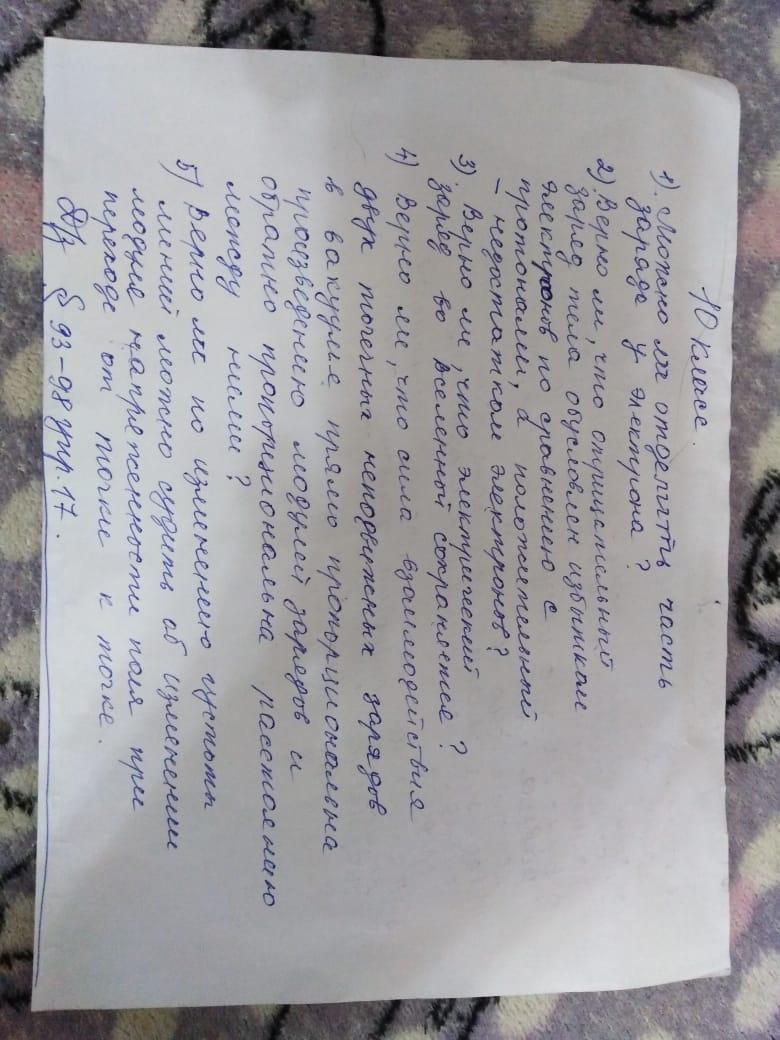 10 класс.
1). Можно ли отделить часть
заряда у электрона?
2). Верно ли, что отрицательный
заряд тела обусловлен избытком
электронов по сравнению с
протонами, а положительный
– недостатком электронов?
3) Верно ли, что электрический
заряд во вселенной сохраняется?
4) Верно ли, что сила взаимодействия
двух точечных неподвижных зарядов
в вакууме прямо пропорциональна
произведению модулей зарядов и
обратно пропорциональна расстоянию
между ними?
5) Верно ли по изменению густоты
линий можно судить об изменении
модуля напряженности поля при
переходе от точки к точке.
Д/з § 93-98 упр. 17.